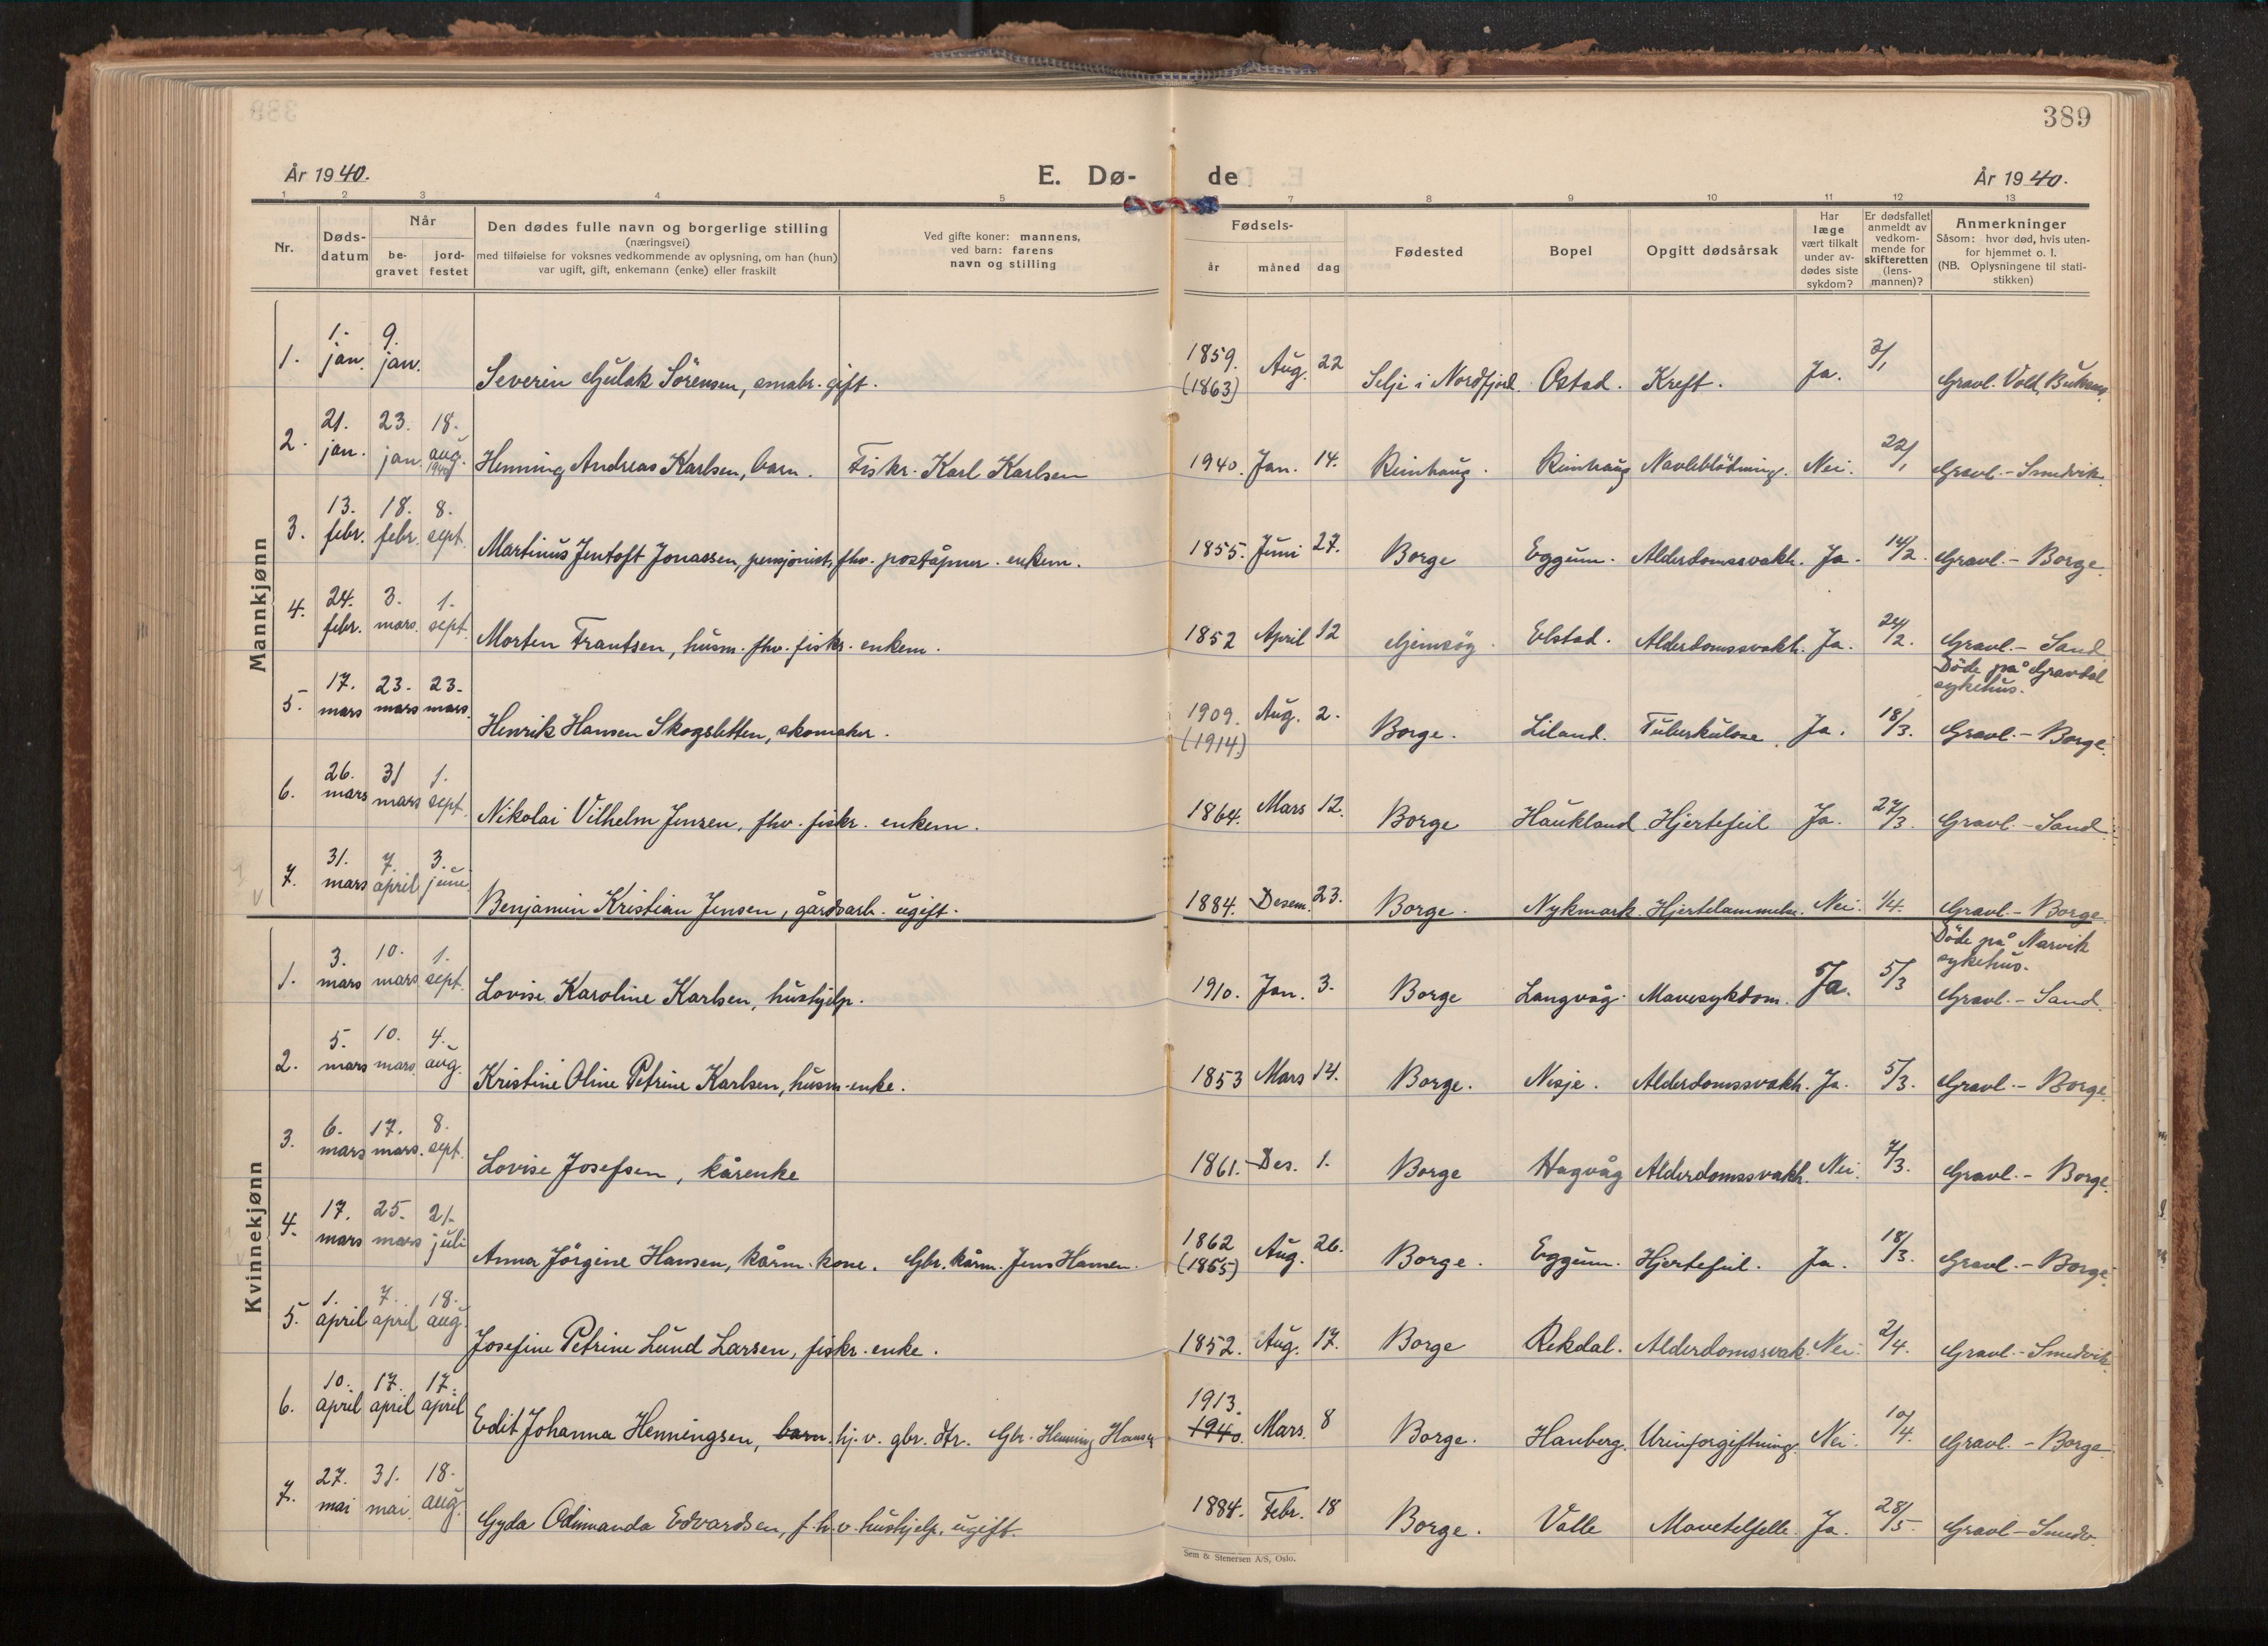 389
År 1940. E. Dø- de År 1940.
1 2 3 4 5 7 8 9 10 11 12 13
Nr. Døds-datum Når be-gravet jord-festet Den dødes fulle navn og borgerlige stilling (næringsvei) med tilføielse for voksnes vedkommende av oplysning, om han (hun) var ugift, gift, enkemann (enke) eller fraskilt Ved gifte koner: mannens, ved barn: farens navn og stilling Fødsels- år måned dag Fødested Bopel Opgitt dødsårsak Har læge vært tilkalt under av-dødes siste sykdom? Er dødsfallet anmeldt av vedkom-mende for skifteretten (lens-mannen)? Anmerkninger Såsom: hvor død, hvis uten-for hjemmet o. l. (NB. Oplysningene til stati-stikken)
Mannkjønn
1. 1. jan. 9. jan. Severin Gulak Sörensen, småbr. gift. 1859. (1863) Aug. 22 Selje i Nordfjord. Ostad. Kreft. Ja. 3/1 Gravl. Vold, Buksnes
2. 21. jan. 23. jan. 18. aug. 1940 Henning Andreas Karlsen, barn. Fiskr. Karl Karlsen 1940. Jan. 14. Rimhaug. Rimhaug Navleblödning. Nei. 22/1 Gravl. - Smedvik.
3. 13. febr. 18. febr. 8. sept. Martinus Jentoft Jonassen, pensjonist, fhv. poståpner. enkem. 1855. Juni 27. Borge Eggum. Alderdomssvakh. Ja. 14/2. Gravl. - Borge.
4. 24. febr. 3. mars. 1. sept. Morten Frantsen, husm. fhv. fiskr. enkem. 1852 April 12 Gjemsøy. Elstad. Alderdomssvakh. Ja. 24/2. Gravl. - Sand.
5. 17. mars 23. mars 23. mars. Henrik Hansen Skogsletten, skomaker. 1909. (1914) Aug. 2. Borge. Liland. Tuberkulose. Ja. 18/3. Döde på Gravdal sykehus. Gravl. - Borge.
6. 26. mars 31 mars 1. sept. Nikolai Vilhelm Jensen, fhv. fiskr. enkem. 1864. Mars 12. Borge Haukland Hjertefeil Ja. 27/3. Gravl. - Sand.
7. 31. mars 7. april 3. juni Benjamin Kristian Jensen, gårdsarb. ugift. 1884. Desem. 23. Borge. Nykmark. Hjertelammelse. Nei. 1/4. Gravl. - Borge.
Kvinnekjønn
1. 3. mars 10. mars 1. sept. Lovise Karoline Karlsen, hushjelp. 1910. Jan. 3. Borge Langvåg. Mavesykdom. Ja. 5/3 Döde på Narvik sykehus. Gravl. - Sand.
2. 5. mars 10. mars. 4. aug. Kristine Oline Petrine Karlsen, husm-enke. 1853 Mars 14. Borge. Nesje. Alderdomssvakh. Ja. 5/3. Gravl. - Borge.
3. 6. mars 17. mars. 8. sept. Lovise Josefsen, kårenke 1861. Des. 1. Borge Hagvåg Alderdomssvakh. Nei. 7/3. Gravl. - Borge.
4. 17. mars 25. mars 21. juli Anna Jörgine Hansen, kårm. kone. Gbr. kårm. Jens Hansen. 1862 (1865) Aug. 26. Borge. Eggum. Hjertefeil. Ja. 18/3. Gravl. - Borge.
5. 1. april 7. april 18. aug. Josefine Petrine Lund Larsen, fiskr. enke. 1852. Aug. 17. Borge Rekdal. Alderdomssvak. Nei. 2/4. Gravl. - Smedvik
6. 10. april 17. april 17. april Edit Johanna Henningsen, barn. hj. v. gbr. dtr. Gbr. Henning Hansen 1913. 1940. Mars. 8 Borge. Hauberg. Urinforgiftning. Nei. 10/4. Gravl. - Borge.
7. 27. mai 31. mai. 18. aug. Gyda Odinanda Edvardsen, f.h.v. hushjelp, ugift. 1884. Febr. 18 Borge. Valle Mavetilfelle. Ja. 28/5. Gravl - Smedv.
Sem & Stenersen A/S, Oslo.